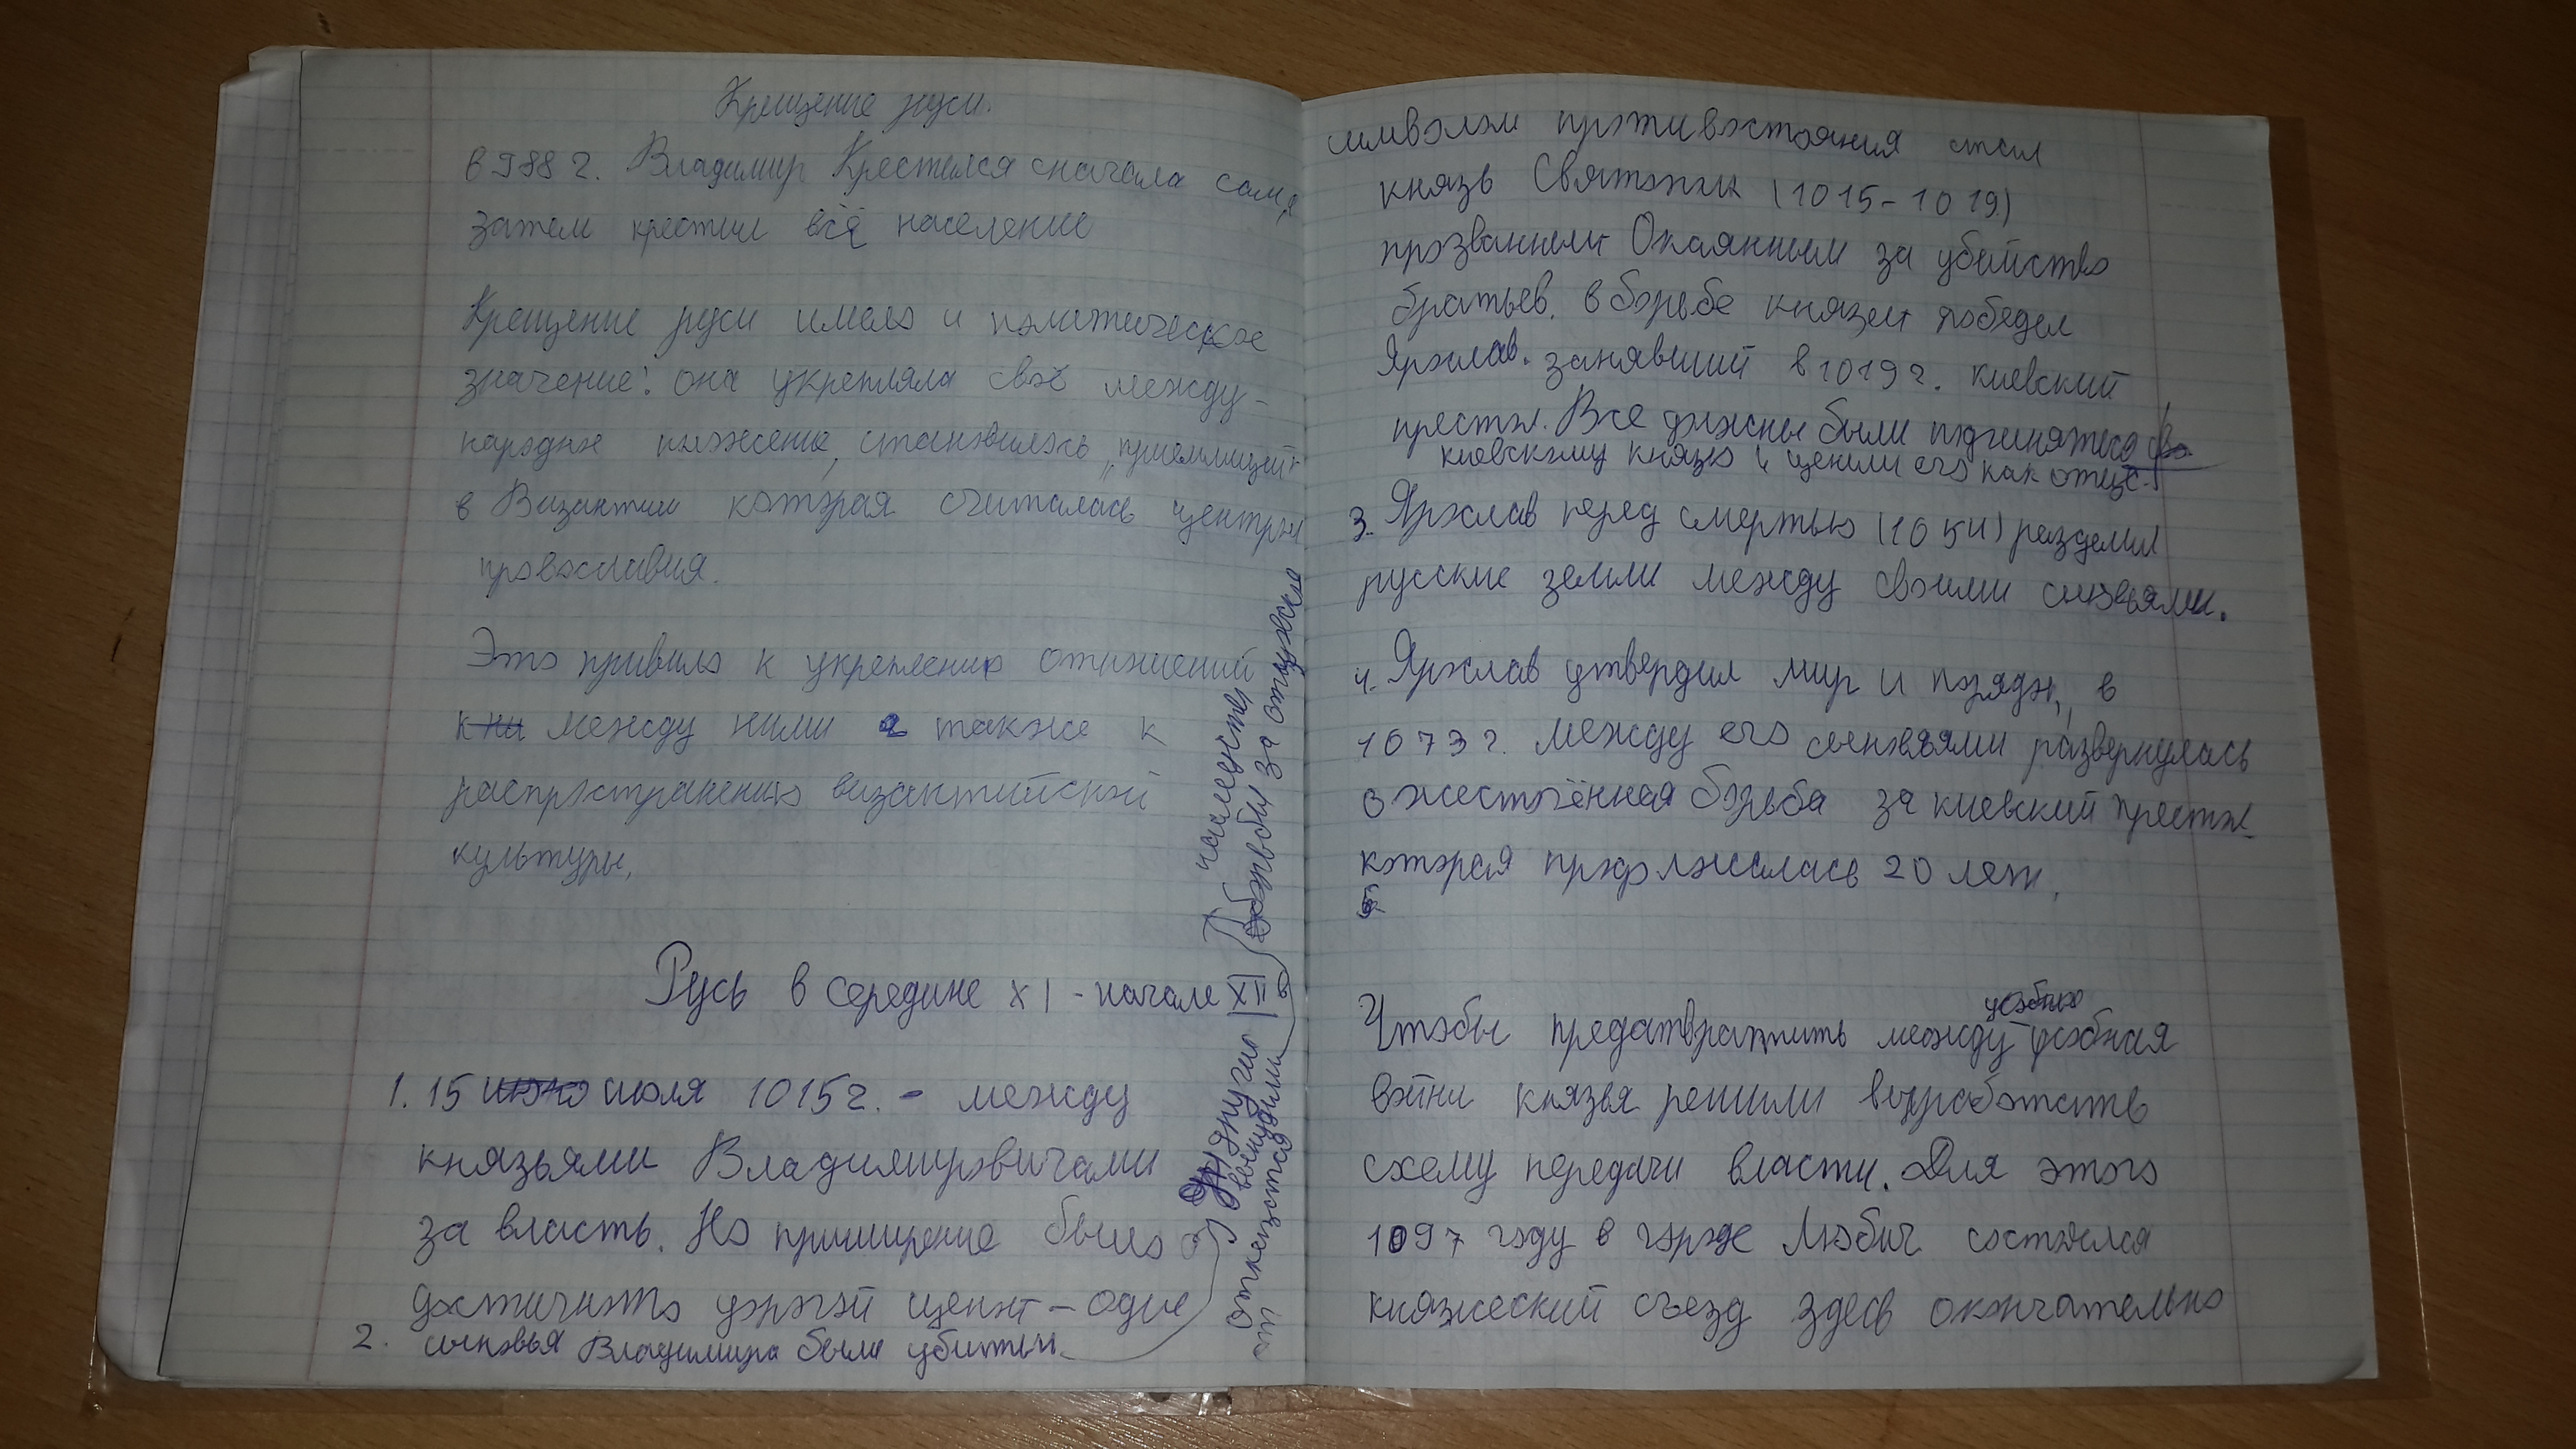 Крещение руси.
в 988 г. Владимир Крестился сначала сам, а
затем крестил всё население
Крещение руси имело и политическое
значение: она укрепляла своё между-
народное положение, становилось „приемницей"
в Византии которая считалась центром
провославия.
Это привило к укреплению отношений
между ними а также к
распространению византийской
культуры.
Русь в середине XI - начале XII в
1. 15 июля 1015 г. - между
князьями Владимировичами
за власть. Но примирение было
достигнуто дорогой ценой - одне
2. сыновья Владимира были убиты
а другие
вынудили
отказаться
от
наследства
Борьбы за отцовское
символом противостояния стал
князь Святополк (1015-1019)
прозванный Окаянным за убийство
братьев. в борьбе князей победил
Ярослав. занявший в 1019 г. киевский
престол. Все должны были подчинятся
киевскому князю и ценили его как отца.
3. Ярослав перед смертью (1054) разделил
русские земли между своими сыновьями.
4. Ярослав утвердил мир и порядок, в
1073 г. между его сыновьями развернулась
ожесточённая борьба за киевский престол
которая продолжалась 20 лет.
5.
усобную
Чтобы предатвратить между усобная
войны князья решили выработать
схему передачи власти. Для этого
1097 году в городе Любич состоялся
княжеский съезд здесь окончательно